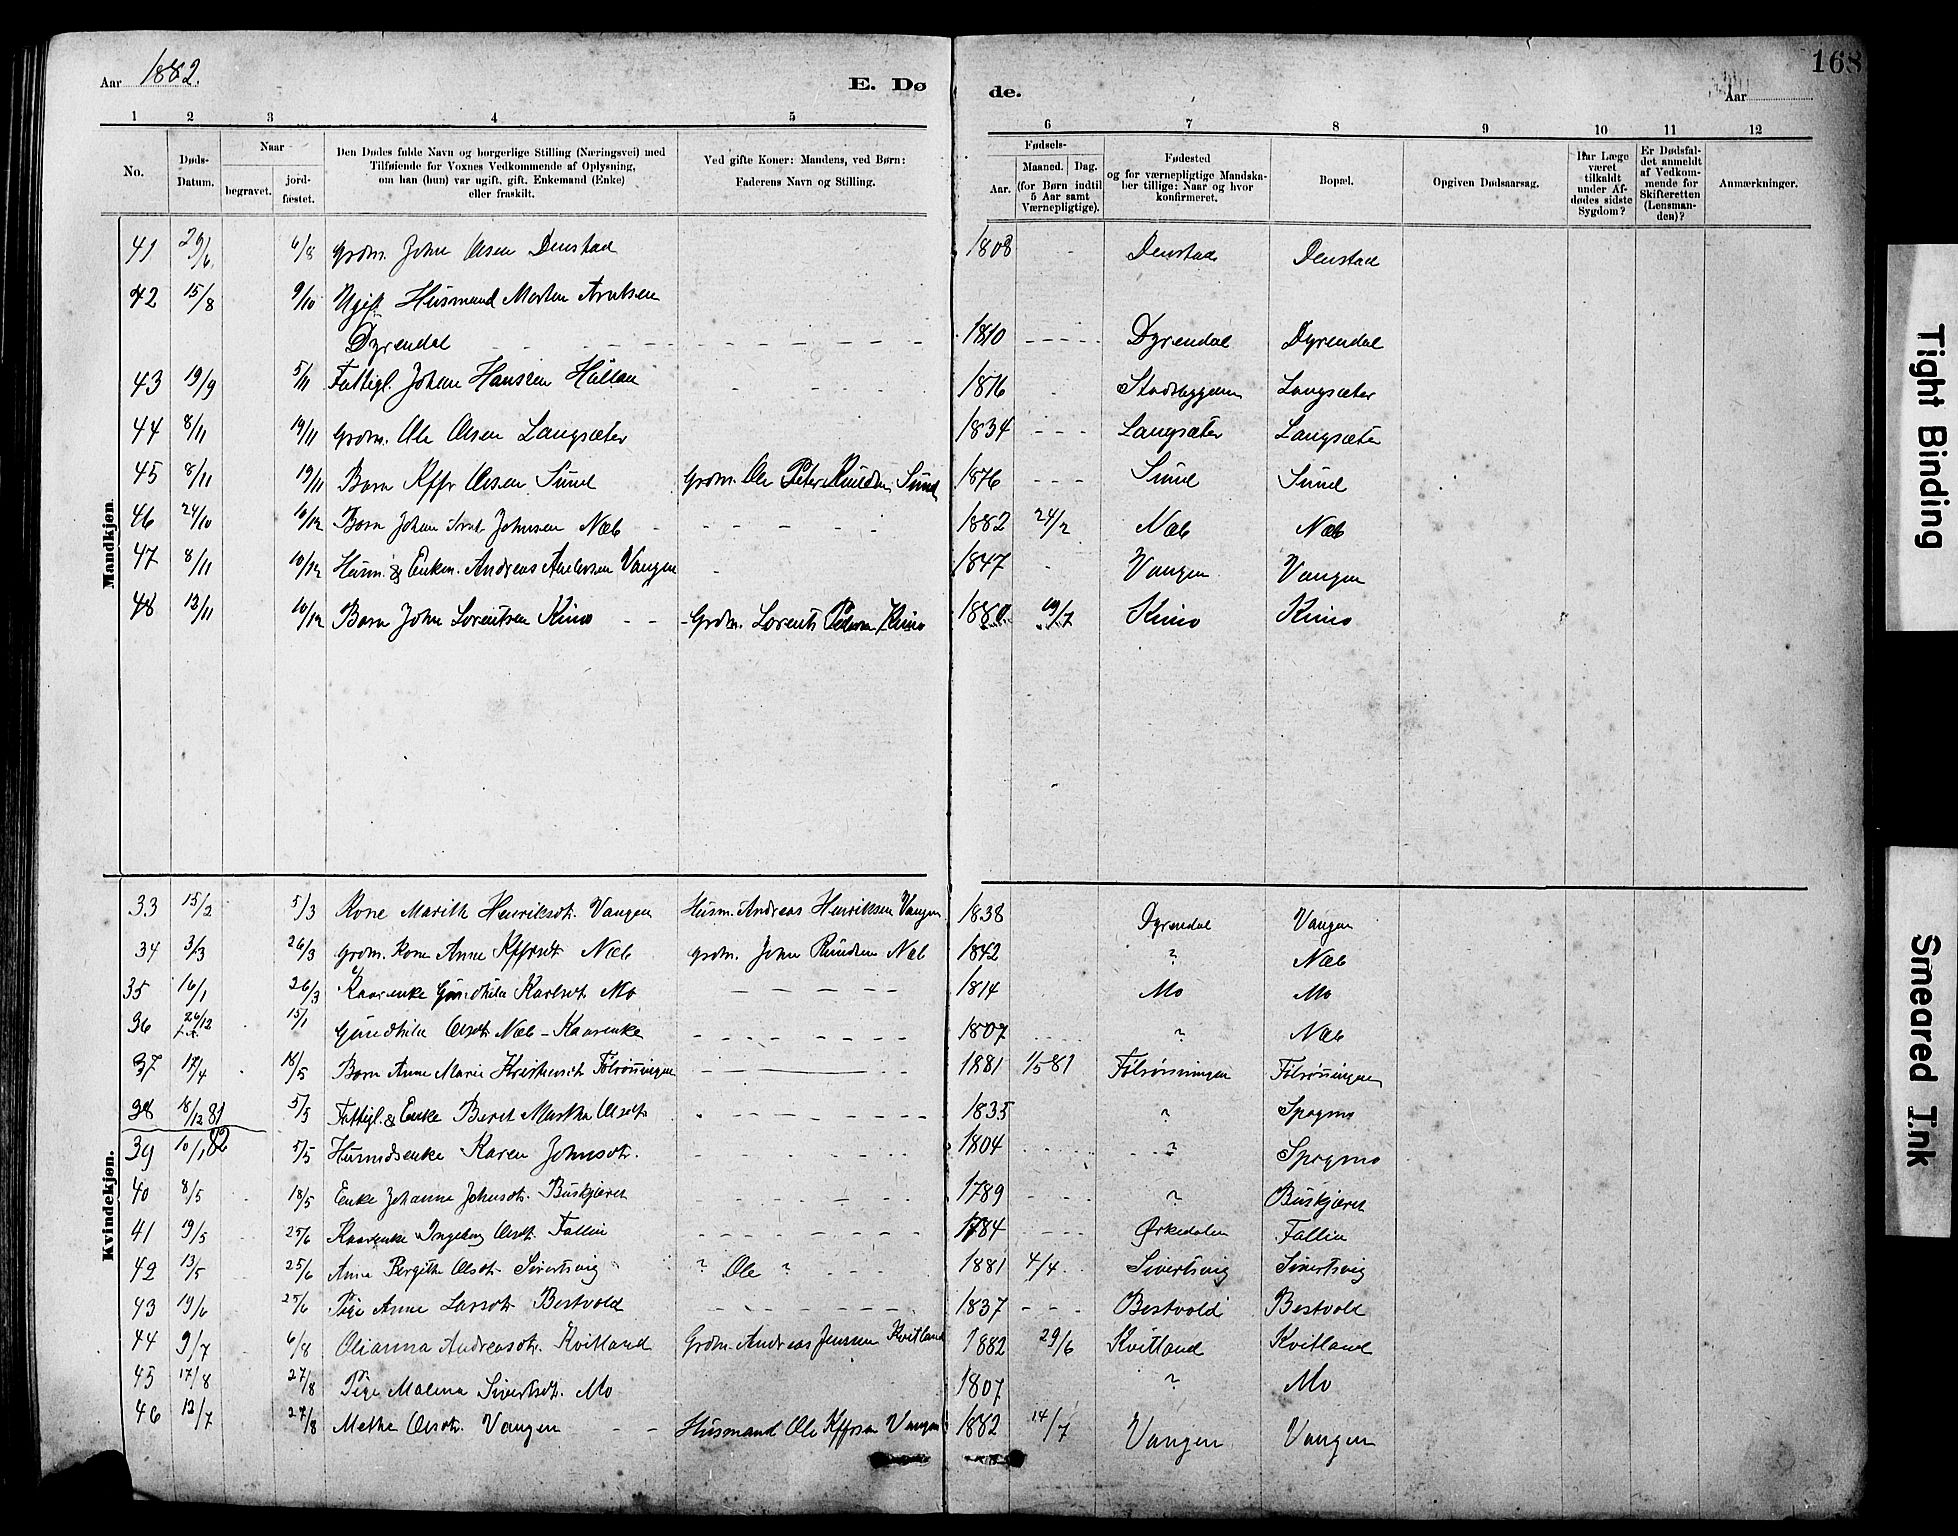 Aar 1882.
E. Døde.
Aar
168
1 2 3 4 5 6 7 8 9 10 11 12
No.
Døds-Datum.
Naar
begravet.
jord-fæstet.
Den Dødes fulde Navn og borgerlige Stilling (Næringsvei) med
Tilføiende for Voxnes Vedkommende af Oplysning,
om han (hun) var ugift, gift, Enkemand (Enke)
eller fraskilt.
Ved gifte Koner: Mandens, ved Børn:
Faderens Navn og Stilling.
Fødsels-
Aar.
Maaned. Dag.
(for Børn indtil
5 Aar samt
Værnepligtige).
Fødested
og for værnepligtige Mandska-
ber tillige: Naar og hvor
konfirmeret.
Bopæl.
Opgiven Dødsaarsag.
Har Læge
været
tilkaldt
under Af-
dødes sidste
Sygdom?
Er Dødsfal-
det anmeldt
af Vedkom-
mende for
Skifteretten
(Lensman-
den)?
Anmærkninger.
Mandkjøn.
41 29/6 6/8 Grdm. John Olsen Denstad 1808 Denstad Denstad
42 15/8 9/10 Ugift Husmand Morten Arntsen
Dyrendal 1810 Dyrendal Dyrendal
43 19/9 5/11 Fattigl. Johan Hansen 1816 Stadsbygden Langsæter
44 8/11 19/11 Grdm. Ole Olsen Langsæter 1834 Langsæter Langsæter
45 8/11 19/11 Barn Kffr Olsen Sund Grdm. Ole Peter Knudsen Sund 1876 Sund Sund
46 24/10 10/12 Barn Johan Arnt Johnsen Næb 1882 24/2 Næb Næb
47 8/11 10/12 Husm. & Enkm. Andreas Andersen Vangen 1847 Vangen Vangen
48 12/11 10/12 Barn John Lorentsen Kimo Grdm. Lorents Pedersen Kimo 1880 19/7 Kimo Kimo
Kvindekjøn.
33 15/2 5/3 Kone Marith Henriksdt. Vangen Husm. Andreas Henriksen Vangen 1838 Dyrendal Vangen
34 3/3 26/3 Grdm. Kone Anne Kffrsdt Næb Grdm. John Knudsen Næb 1842 ? Næb
35 16/1 26/3 Kaarenke Gundhilda Karlsdt Mo 1814 Mo Mo
36 26/12 15/1 Gundhild Olsdt. Næb - Kaarenke 1807 ? Næb
37 17/4 18/5 Barn Anne Marie Kristensdt Følrösningen 1881 1/5 81 Følrösningen Følrösningen
38 18/12 81 5/5 Fattigl. & Enke Beret Martha Olsdt. 1835 ? Spogmo
39 10/1 82 5/5 Husmdsenke Karen Johnsdt. 1804 ? Spogmo
40 8/5 18/5 Enke Johanna Johnsdt. Buskjæret 1789 ? Buskjæret
41 19/5 25/6 Kaarenke Ingeborg Olsdt. Fallin 1784 Ørkedalen Fallin
42 13/5 25/6 Anne Bergithe Olsdt. Sivertsvig ? Ole ? 1881 4/4 Sivertsvig Sivertsvig
43 19/6 25/6 Pige Anne Larsdt. Bestvold 1837 Bestvold Bestvold
44 9/7 6/8 Olianna Andreasdt. Kvitland Grdm. Andreas Jensen Kvitland 1882 29/6 Kvitland Kvitland
45 17/8 27/8 Pige Malena Sivertsdt. Mo 1807 ? Mo
46 12/7 27/8 Methe Olsdt. Vangen Husmand Ole Kffrsen Vangen 1882 14/7 Vangen Vangen
Tight Binding
Smeared Ink